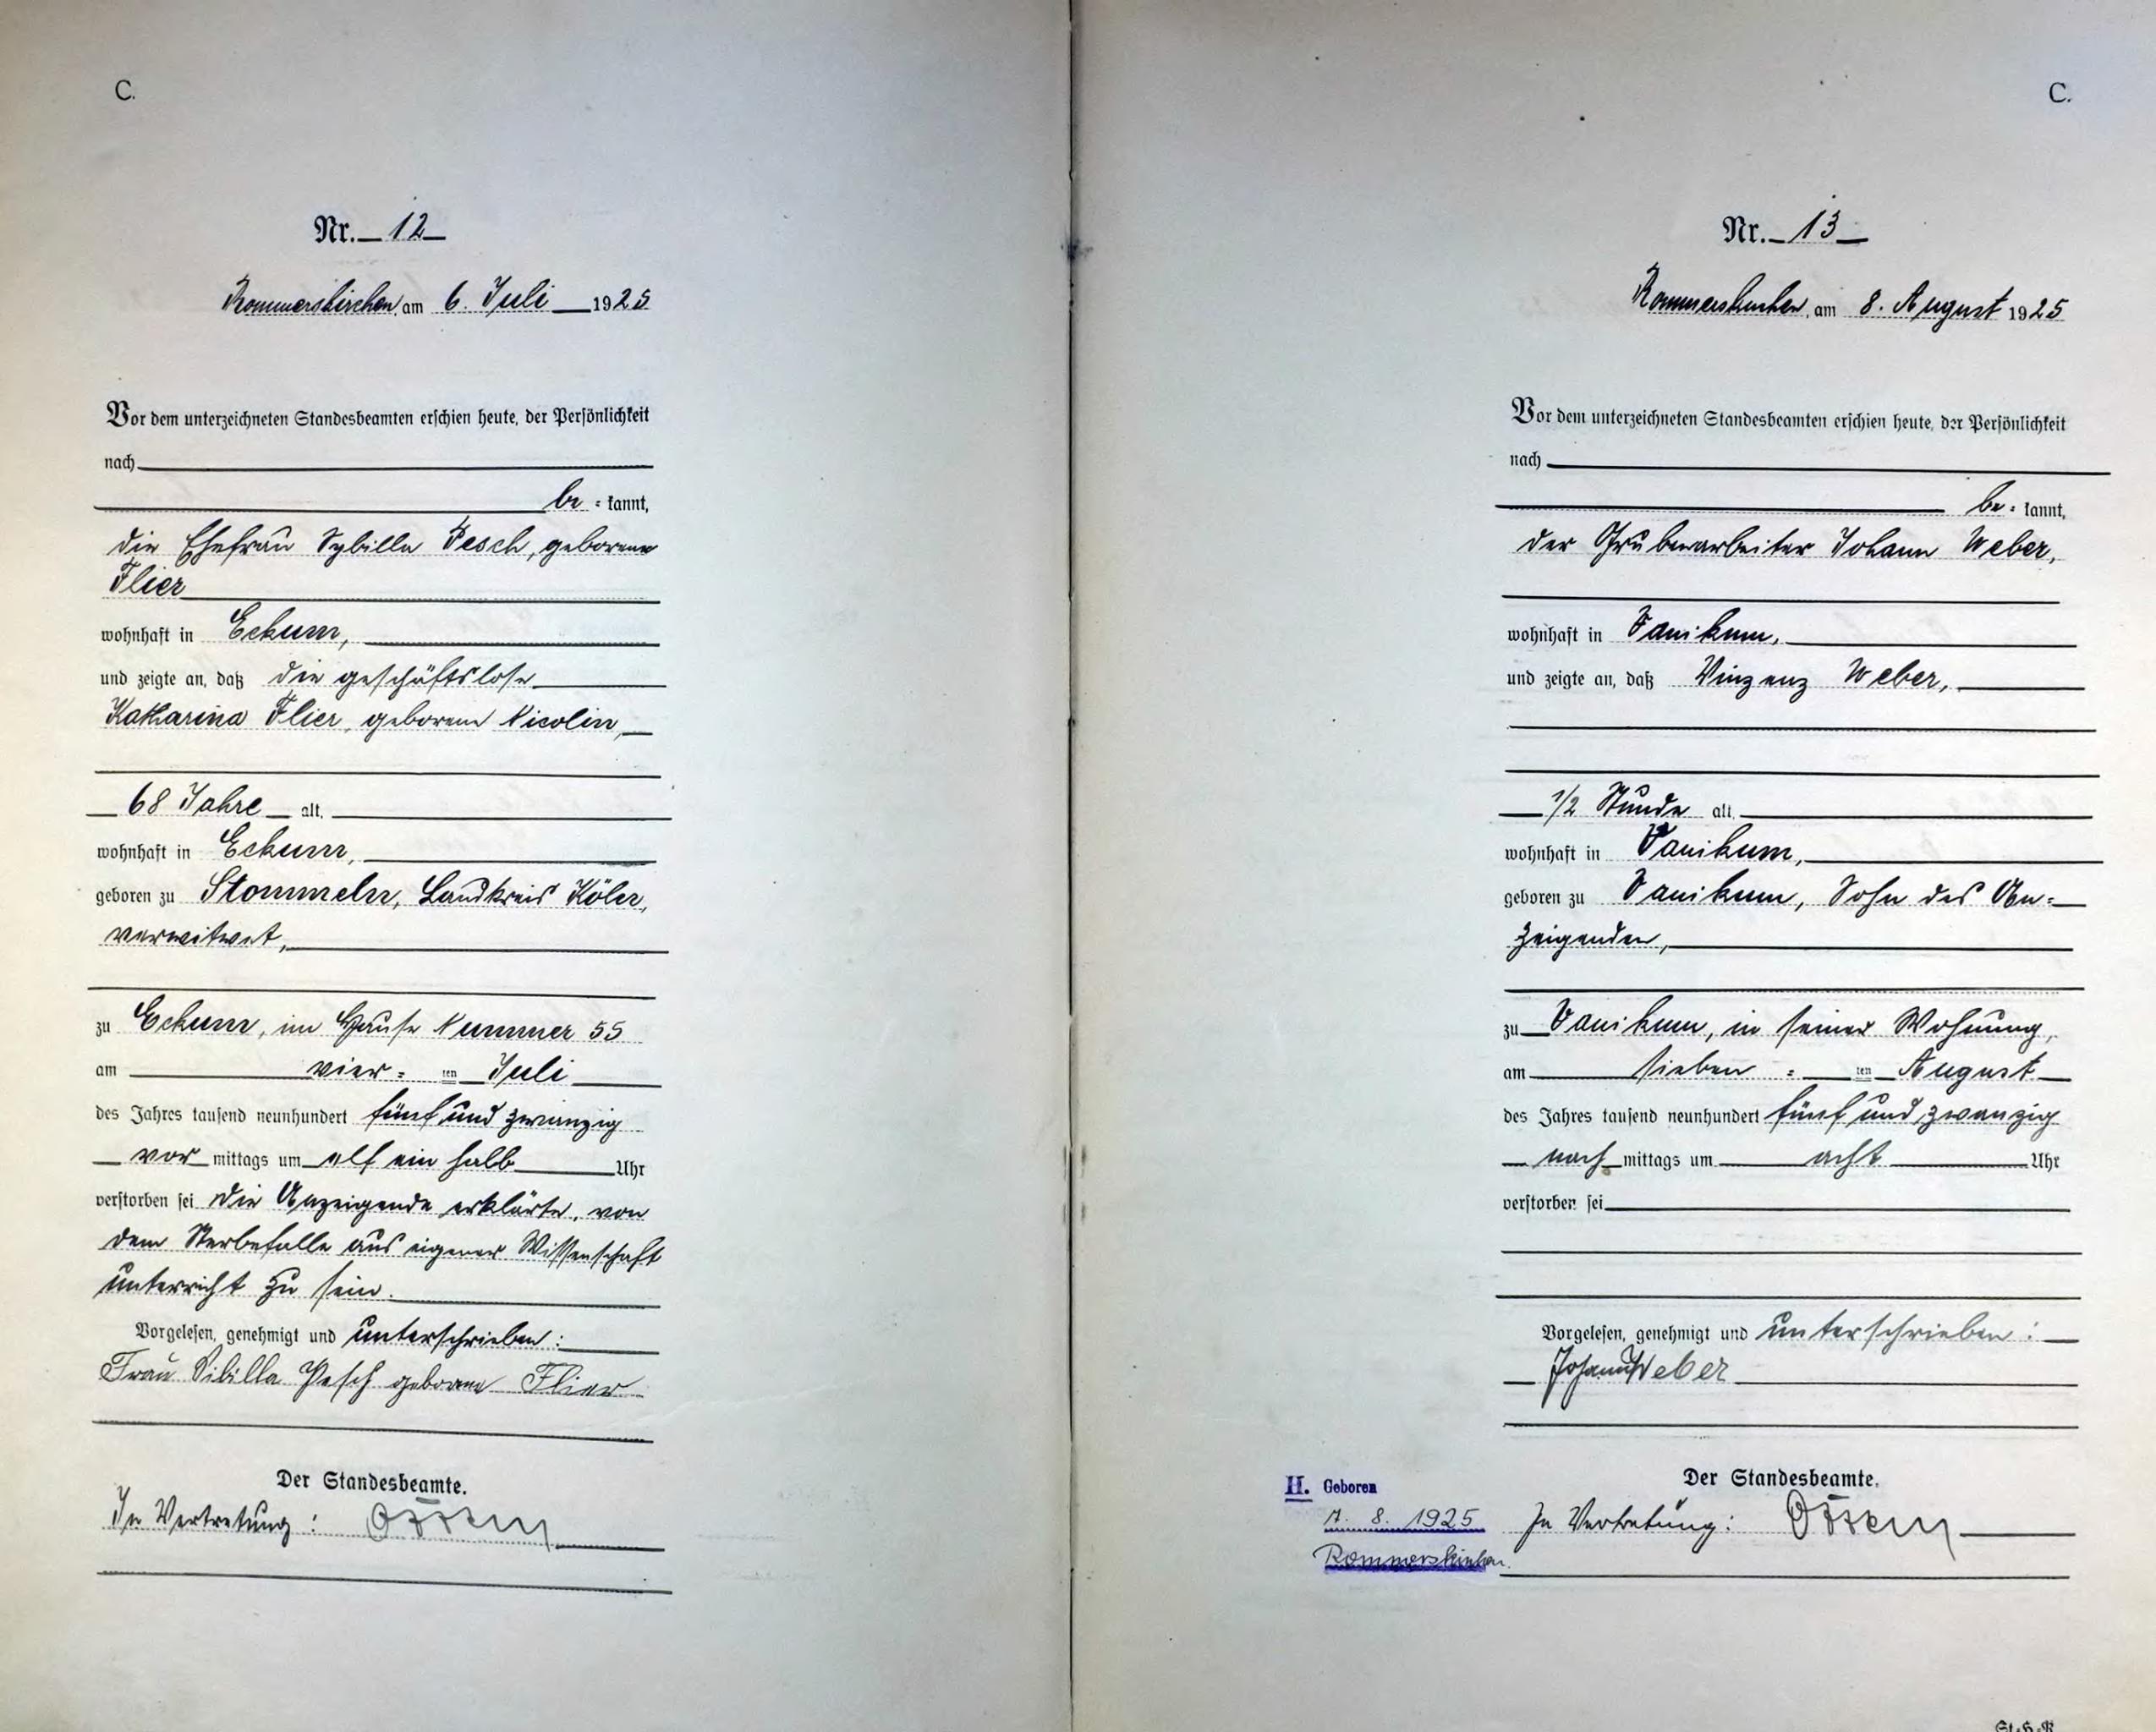 C.
Nr. 12
Rommerskirchen, am 6. Juli 1925
Vor dem unterzeichneten Standesbeamten erschien heute, der Persönlichkeit
nach
be = kannt,
die Ehefrau Sybilla Pesch, geborene
Flier
wohnhaft in Eckum,
und zeigte an, daß die geschäftslose
Katharina Flier, geborene Nicolin,
68 Jahre alt,
wohnhaft in Eckum,
geboren zu Stommeln, Landkreis Köln,
verwitwet,
zu Eckum, im Hause Nummer 55
am vier = ten Juli
des Jahres tausend neunhundert fünf und zwanzig
vor mittags um elf ein halb Uhr
verstorben sei Die Anzeigende erklärte, von
dem Sterbefalle aus eigener Wissenschaft
unterricht zu sein.
Vorgelesen, genehmigt und unterschrieben:
Frau Sibilla Pesch geborene Flier
Der Standesbeamte.
In Vertretung:
C.
Nr. 13
Rommerskirchen, am 8. August 1925
Vor dem unterzeichneten Standesbeamten erschien heute, der Persönlichkeit
nach
be = kannt,
der Grubenarbeiter Johann Weber,
wohnhaft in Vanikum,
und zeigte an, daß Vinzenz Weber,
1/2 Stunde alt,
wohnhaft in Vanikum,
geboren zu Vanikum, Sohn des An=
zeigenden,
zu Vanikum, in seiner Wohnung,
am sieben = ten August
des Jahres tausend neunhundert fünf und zwanzig
nach mittags um acht Uhr
verstorben sei
Vorgelesen, genehmigt und unterschrieben:
Johann Weber
Der Standesbeamte.
In Vertretung:
H. Geboren
7. 8. 1925
Rommerskirchen.